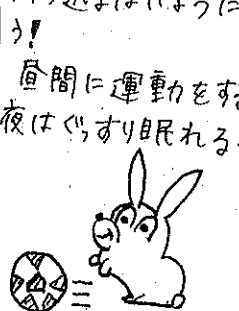 ように
う!
昼間に運動をする
夜はぐっすり眠れる